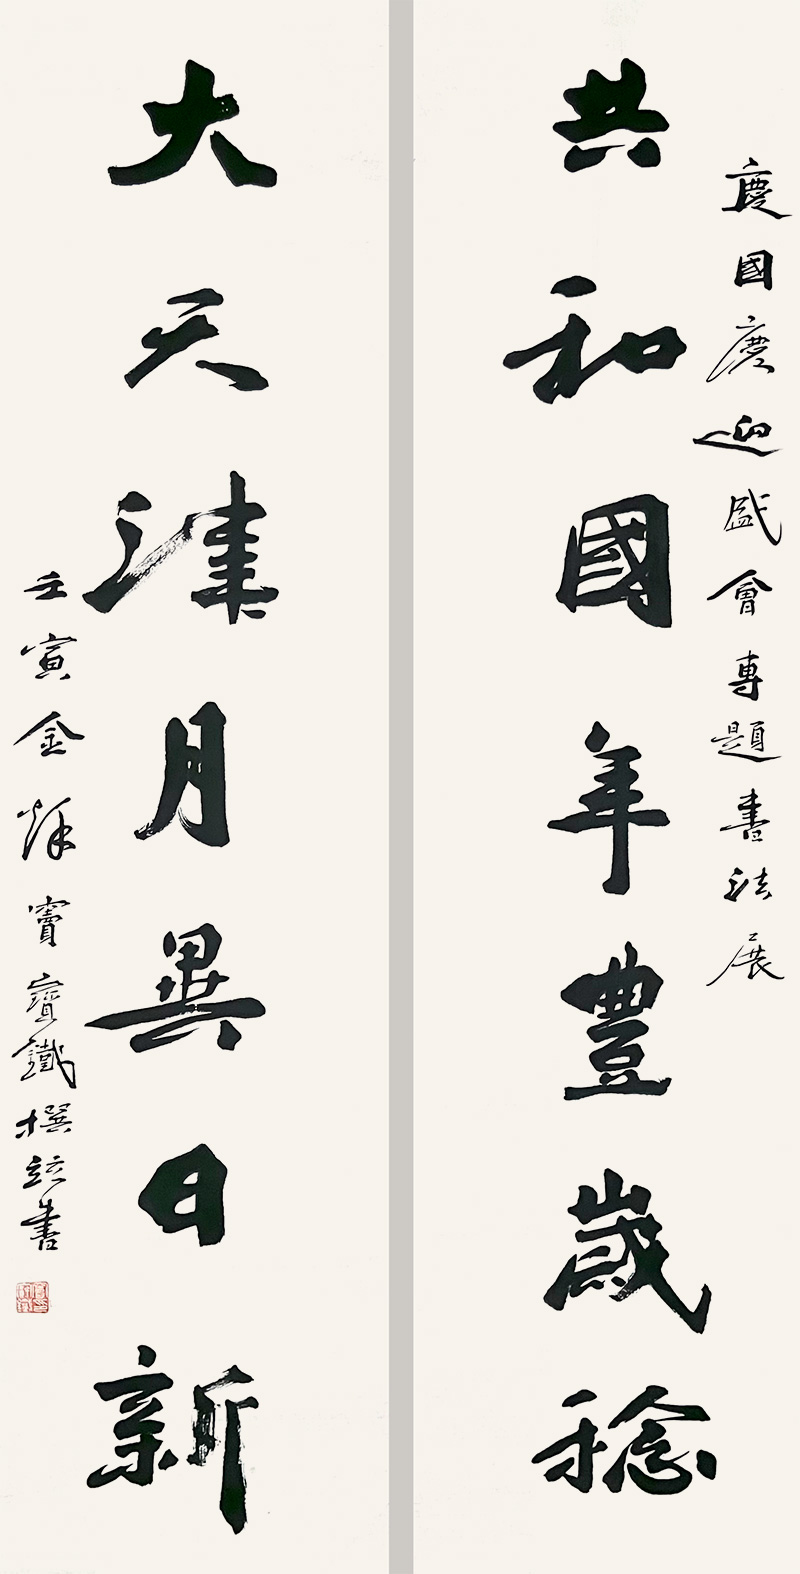 慶國慶迎盛會專題書法展
共和國年豐歲稔
大天津月異日新
壬寅金秋竇寶鐵撰聯書